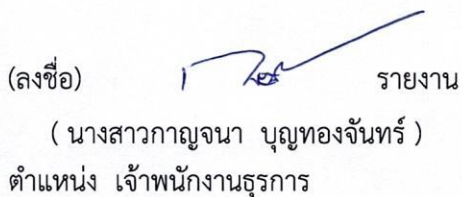 (ลงชื่อ) รายงาน
( นางสาวกาญจนา บุญทองจันทร์ )
ตำแหน่ง เจ้าพนักงานธุรการ